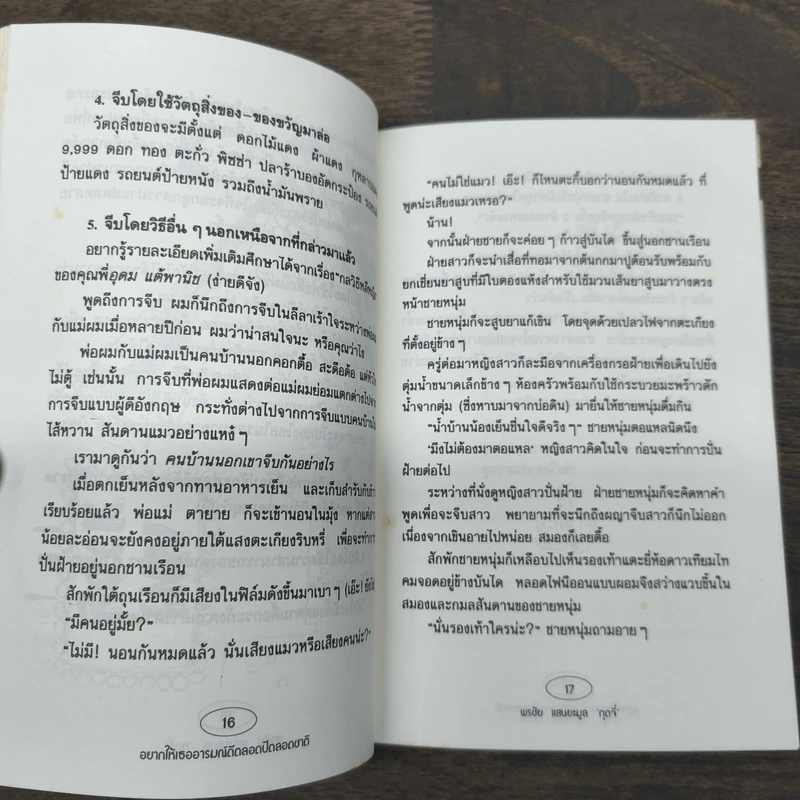 4. จีบโดยใช้วัตถุสิ่งของ-ของขวัญมาล่อ
วัตถุสิ่งของจะมีตั้งแต่ ดอกไม้แดง ผ้าแดง
9,999 ดอก ทอง ตะกั่ว พิซซ่า ปลาร้าบองอัดกระป๋อง
ป้ายแดง รถยนต์ป้ายหนัง รวมถึงน้ำมันพราย
5. จีบโดยวิธีอื่น ๆ นอกเหนือจากที่กล่าวมาแล้ว
อยากรู้รายละเอียดเพิ่มเติมศึกษาได้จากเรื่อง
ของคุณพี่อุดม แต้พานิช (ง่ายดีจัง)
พูดถึงการจีบ ผมก็นึกถึงการจีบในลีลาเร้าใจระหว่าง
กับแม่ผมเมื่อหลายปีก่อน ผมว่าน่าสนใจนะ หรือคุณว่าไง
พ่อผมกับแม่ผมเป็นคนบ้านนอกคอกตื้อ สะดือด้อ
ไม่ตู้ เช่นนั้น การจีบที่พ่อผมแสดงต่อแม่ผมย่อมแตกต่างไป
การจีบแบบผู้ดีอังกฤษ กระทั่งต่างไปจากการจีบแบบคน
ไส้หวาน สันดานแมวอย่างแหง๋ ๆ
เรามาดูกันว่า คนบ้านนอกเขาจีบกันอย่างไร
เมื่อตกเย็นหลังจากทานอาหารเย็น และเก็บสำรับกับข้าว
เรียบร้อยแล้ว พ่อแม่ ตายาย ก็จะเข้านอนในมุ้ง
น้อยละอ่อนจะยังคงอยู่ภายใต้แสงตะเกียงริบหรี่ เพื่อจะทำการ
ปั่นฝ้ายอยู่นอกชานเรือน
สักพักใต้ถุนเรือนก็มีเสียงในฟิล์มดังขึ้นมาเบา ๆ (เอ๊ะ!
"มีคนอยู่มั้ย?"
"ไม่มี! นอนกันหมดแล้ว นั่นเสียงแมวหรือเสียงคนน่ะ?"
16
อยากให้เธออารมณ์ดีตลอดปีตลอดชาติ
"คนไม่ใช่แมว! เอ๊ะ! ก็ไหนตะกี้บอกว่านอนกันหมดแล้ว ที่
พูดน่ะเสียงแมวเหรอ?"
น้าน!
จากนั้นฝ่ายชายก็จะค่อย ๆ ก้าวสู่บันได ขึ้นสู่นอกชานเรือน
ฝ่ายสาวก็จะนำเสื่อที่ทอมาจากต้นกกมาปูต้อนรับพร้อมกับ
ยกเชี่ยนยาสูบที่มีใบตองแห้งสำหรับใช้มวนเส้นยาสูบมาวางตรง
หน้าชายหนุ่ม
ชายหนุ่มก็จะสูบยาแก้เขิน โดยจุดด้วยเปลวไฟจากตะเกียง
ที่ตั้งอยู่ข้าง ๆ
ครู่ต่อมาหญิงสาวก็ละมือจากเครื่องกรอฝ้ายเพื่อเดินไปยัง
ตุ่มน้ำขนาดเล็กข้าง ๆ ห้องครัวพร้อมกับใช้กระบวยมะพร้าวตัก
น้ำจากตุ่ม (ซึ่งหาบมาจากบ่อดิน) มายื่นให้ชายหนุ่มดื่มกิน
"น้ำบ้านน้องเย็นชื่นใจดีจริง ๆ" ชายหนุ่มตอแหลนิดนึง
'มึงไม่ต้องมาตอแหล' หญิงสาวคิดในใจ ก่อนจะทำการปั่น
ฝ้ายต่อไป
ระหว่างที่นั่งดูหญิงสาวปั่นฝ้าย ฝ่ายชายหนุ่มก็จะคิดหาคำ
พูดเพื่อจะจีบสาว พยายามที่จะนึกถึงผญาจีบสาวก็นึกไม่ออก
เนื่องจากเขินอายไปหน่อย สมองก็เลยตื้อ
สักพักชายหนุ่มก็เหลือบไปเห็นรองเท้าแตะยี่ห้อดาวเทียมไท
คมจอดอยู่ข้างบันได หลอดไฟนีออนแบบผอมจึงสว่างแวบขึ้นใน
สมองและกมลสันดานของชายหนุ่ม
"นั่นรองเท้าใครน่ะ?" ชายหนุ่มถามอาย ๆ
17
พรชัย แสนยะมูล 'กุดจี่'